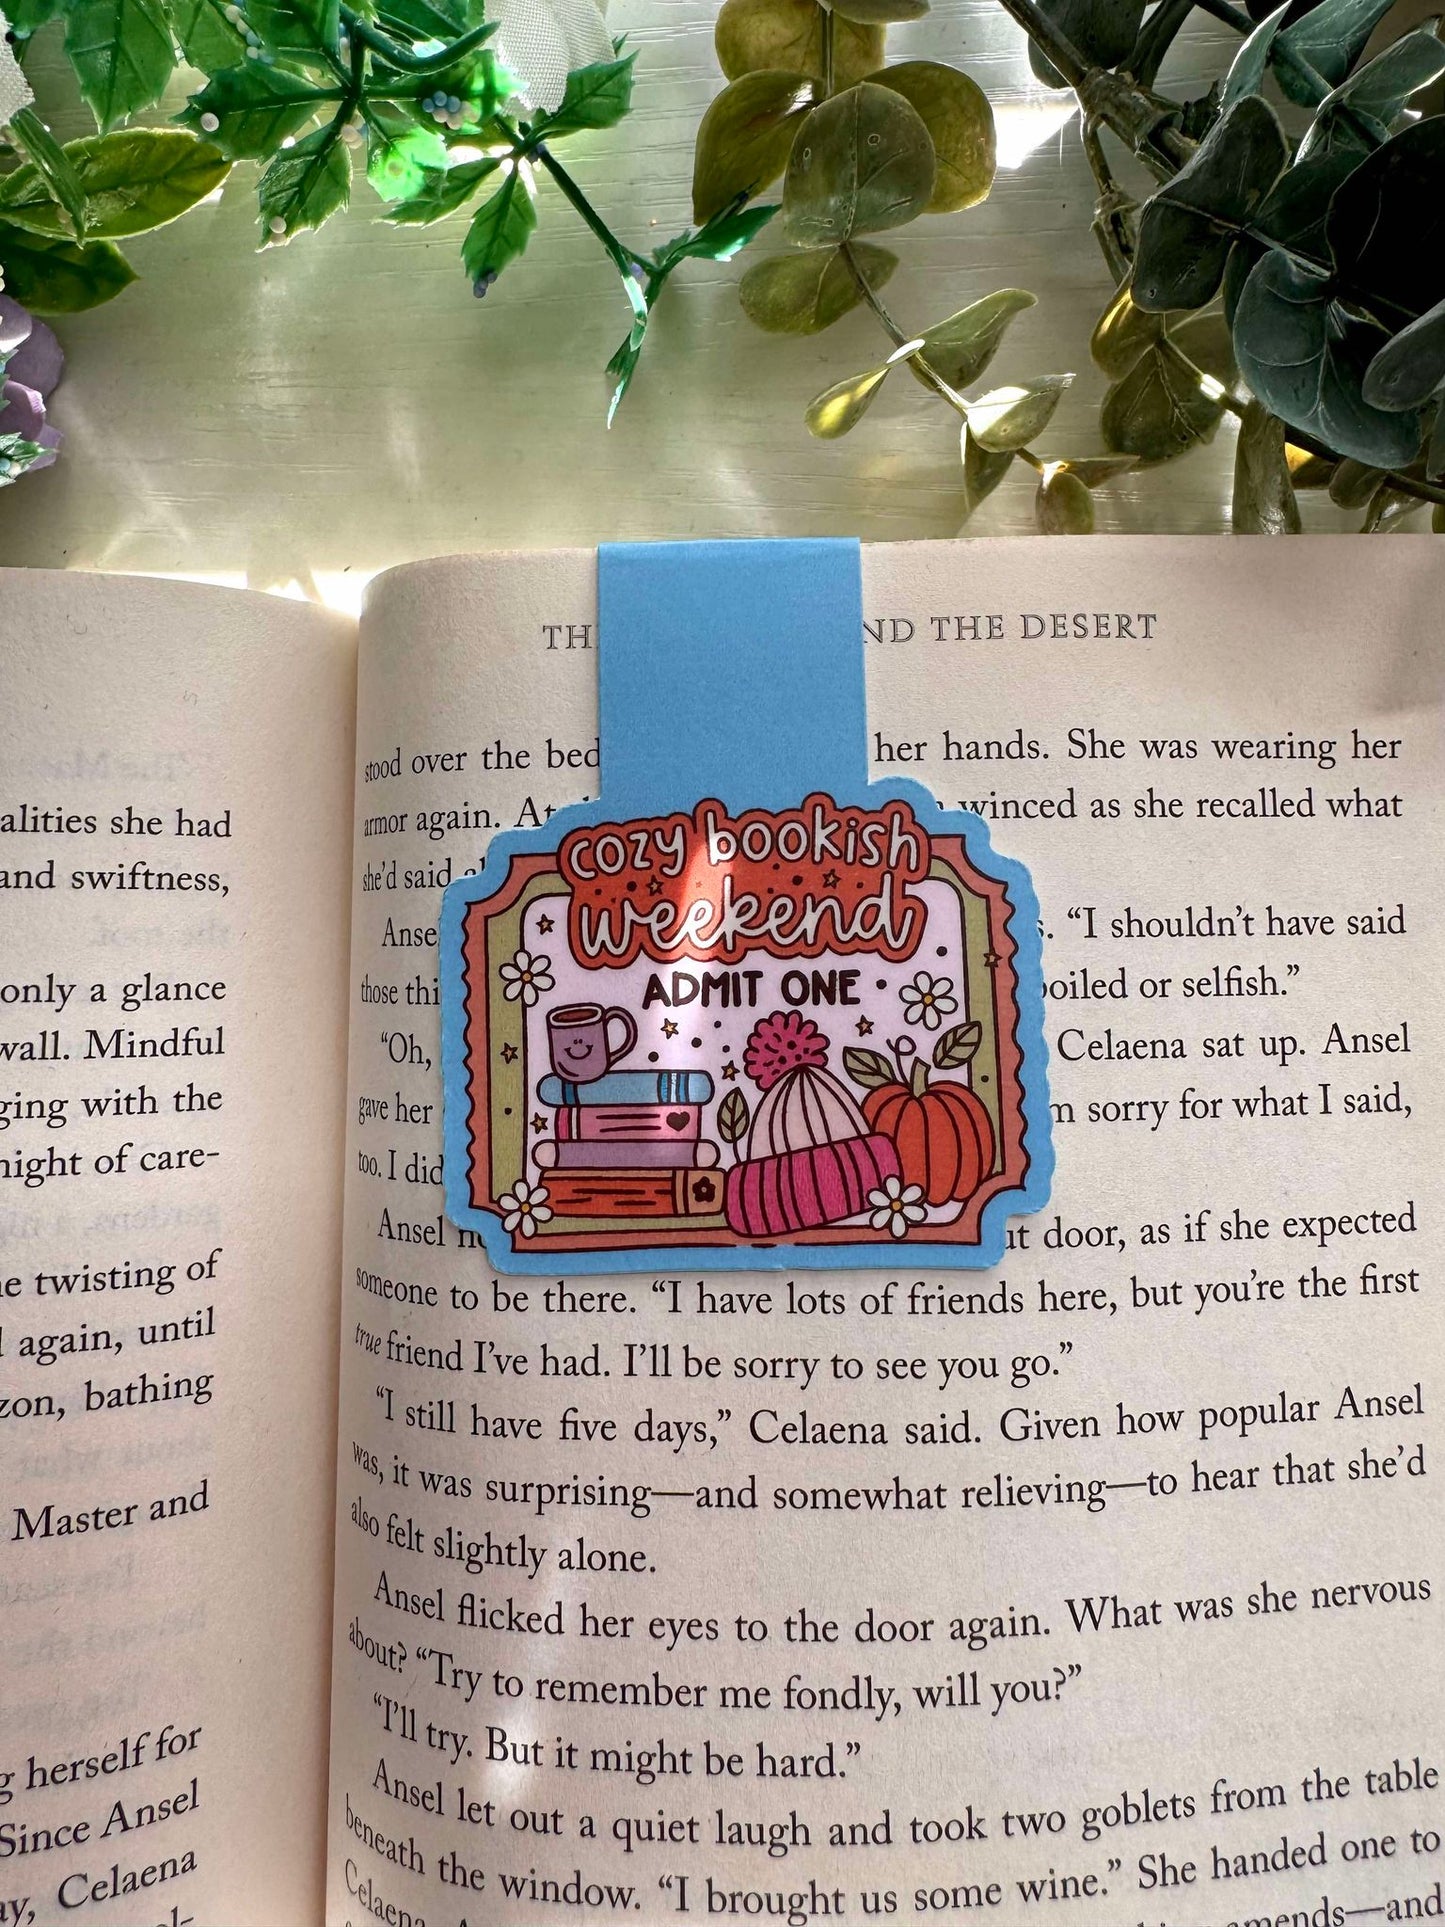 alities she had
and swiftness,
only a glance
wall. Mindful
ging with the
night of care-
e twisting of
again, until
zon, bathing
Master and
g herself for
Since Ansel
ay, Celaena
TH ND THE DESERT
stood over the bed her hands. She was wearing her
armor again. At winced as she recalled what
she’d said
Anse s. “I shouldn’t have said
those thi oiled or selfish.”
“Oh, Celaena sat up. Ansel
gave her m sorry for what I said,
too. I did
Ansel ut door, as if she expected
someone to be there. “I have lots of friends here, but you’re the first
true friend I’ve had. I’ll be sorry to see you go.”
“I still have five days,” Celaena said. Given how popular Ansel
was, it was surprising—and somewhat relieving—to hear that she’d
also felt slightly alone.
Ansel flicked her eyes to the door again. What was she nervous
about? “Try to remember me fondly, will you?”
“I’ll try. But it might be hard.”
Ansel let out a quiet laugh and took two goblets from the table
beneath the window. “I brought us some wine.” She handed one to
Celaena amends—and
cozy bookish
weekend
ADMIT ONE